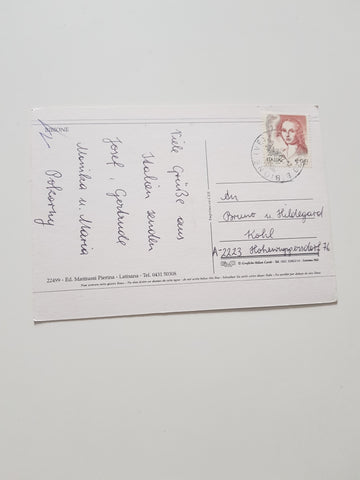 BIBIONE
Viele Grüße aus
Italien senden
Josef, Gertrude
Monika u. Maria
Pokorny
ITALIA
An
Bruno u. Hildegard
Kohl
A-2223 Hohenruppersdorf 76
22499 - Ed. Mattiussi Pierina - Latisana - Tel. 0431 50308